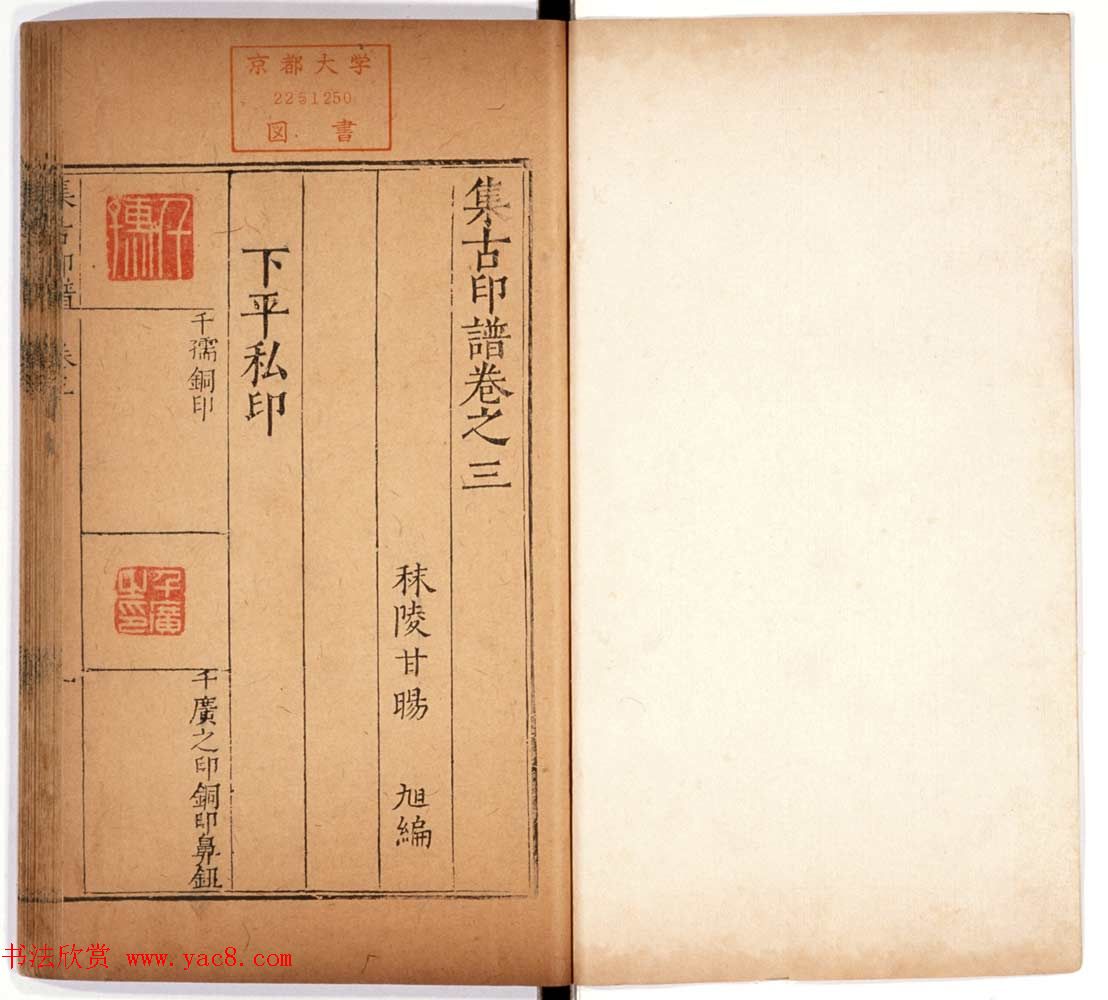 京都大学
2251250
図書
集古印譜卷之三
秣陵甘暘 旭編
下平私印
千孺銅印
千廣之印銅印鼻鈕
集古印譜 卷
书法欣赏 www.yac8.com